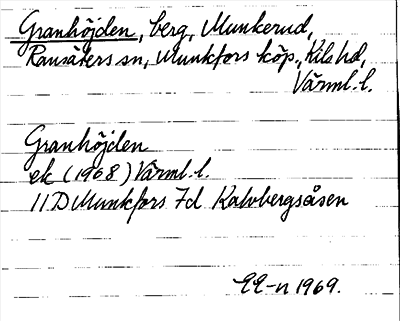 Granhöjden, berg, Munkerud,
Ransäters sn, Munkfors köp., Kils hd,
Värml. l.
Granhöjden
ek (1968) Värml. l.
11D Munkfors 7d Kalvbergsåsen
1969.